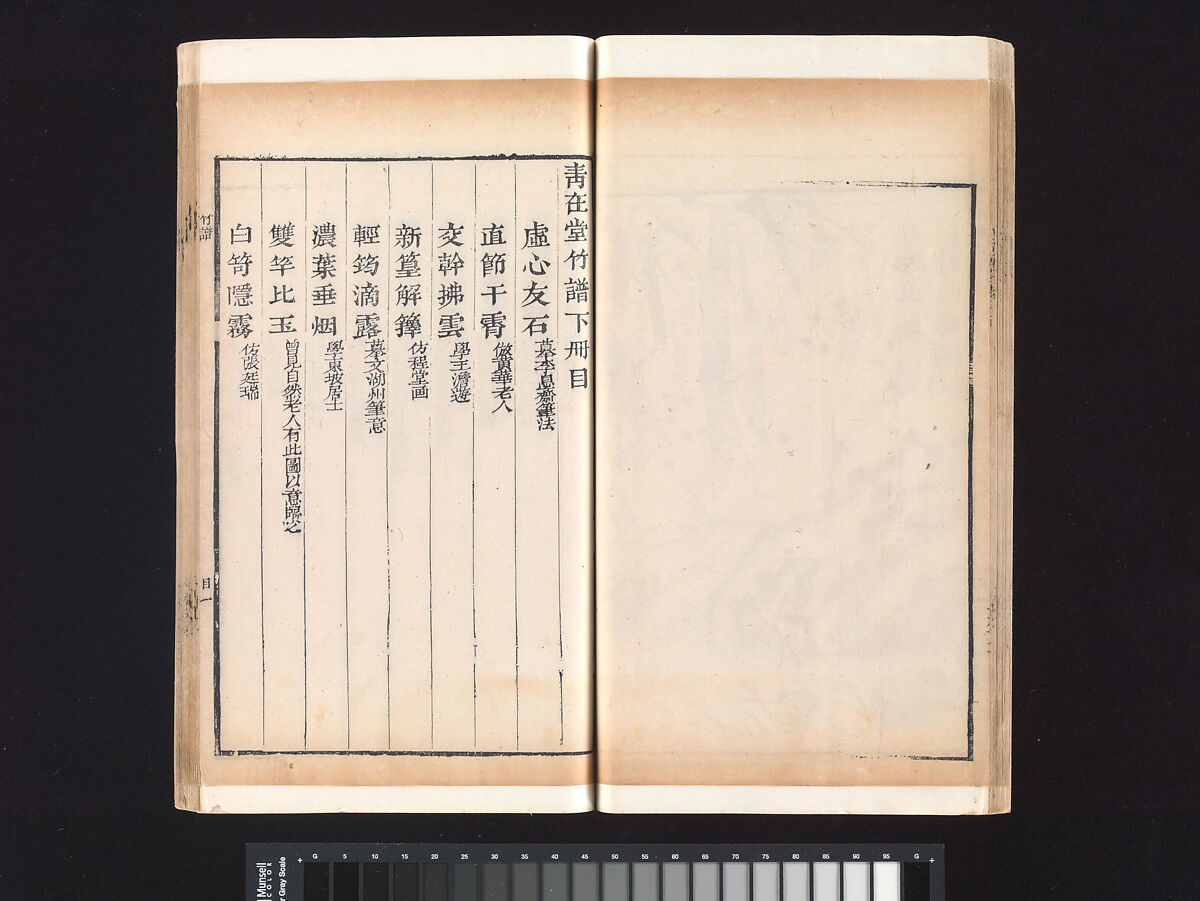 青在堂竹譜下冊目
虛心友石 摹李息齋筆法
直節干霄 倣黃華老人
交幹拂雲 學王澹游
新篁解籜 仿程堂画
輕筠滴露 摹文湖州筆意
濃葉垂烟 學東坡居士
雙竿比玉 曾見自然老人有此圖以意臨之
白笴隱霧 仿張延瑞
竹譜
目一
G 5 10 15 20 25 30 35 40 45 50 55 60 65 70 75 80 85 90 95 G
Munsell
COLOR
Gray Scale